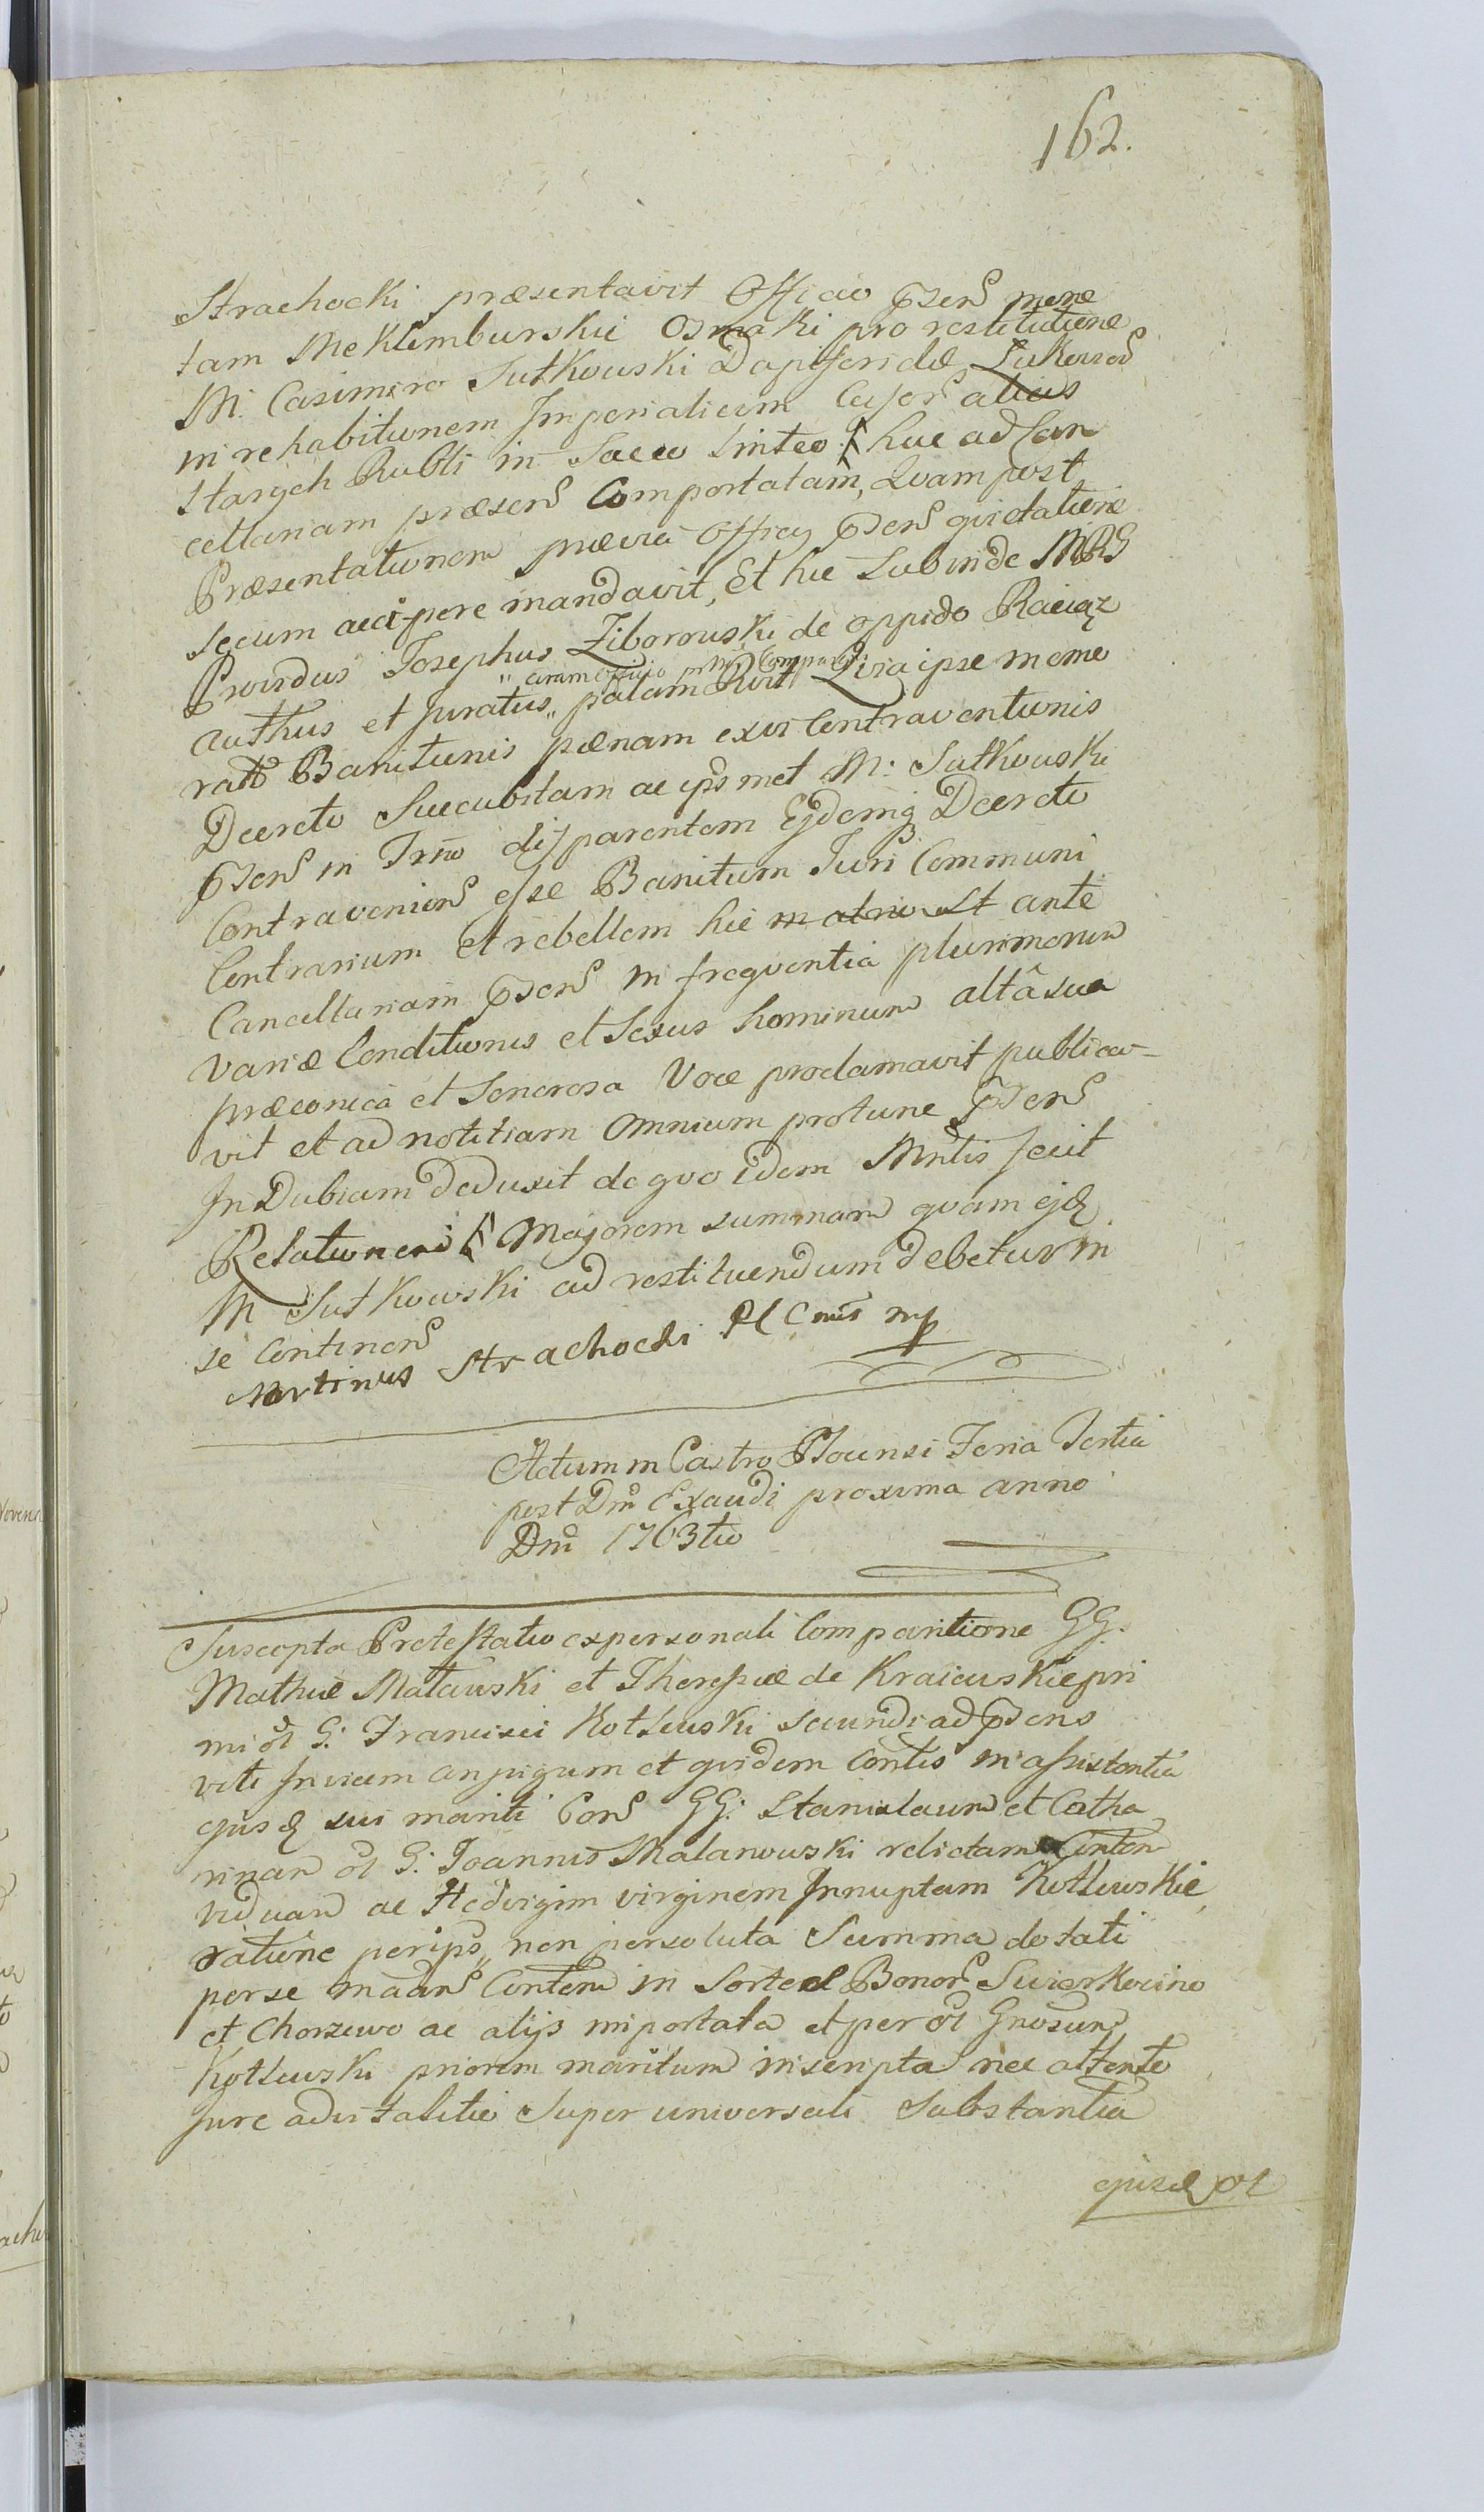 162.
Strachocki præsentavit Officio pnsen mone
tam Meklemburskie Osmaki pro restitutione
M. Casimiro Sutkowski Dapiferidæ
in rehabitionem Imperialium alias
Starych Rubli in Sacco linteo huc ad Can
cellariam præsen Comportatam, Quam post
Præsentationem prævia Officij pnsen qvietatione
secum accipere mandavit, Et hic Subinde MRG
Providus Josephus Ziborouski de oppido Raciąz
authus et Juratus,, palam Rvit Qvia ipse meme
,, coram Officio pnti Comparens
rato Banitionis pœnam ex vi Contraventionis
Decreto Succubitam ac ipsmet M. Sutkouski
pnsen in Trno disparentem Ejdemq Decreto
Contravenien esse Banitum Juri Communi
Contrarium et rebellem hic in atrio St ante
Cancellariam pnsen in freqventia plurimorum
variæ Conditionis et Sexus hominum altâ sua
præconica et Sonorosa Voce proclamavit publica-
vit et ad notitiam Omnium protunc pnsen
In Dubiam deduxit de qvo idem Mntis fecit
Relationem Majorem summam qvam ejd
M Sutkowski ad restituendum debetur in
se Continen
Martinus Strachocki mp
Actum in Castro Plocensi Feria Tertia
post Dm Exaudi proxima anno
Dni 1763tio
Suscepta Protestatio ex personali Comparitione GG.
Mathiæ Małauski et Theresiæ de Kraieuskie pri
mi ol G. Francisci Kotłuski secundi ad pnsens
voti Invicem conjugum et qvidem Contis in assistentia
ejusd sui mariti Con GG. Stanislaum et Catha
rinam ol G. Joannis Malanouski relictam Conten
viduam ac Hedvigim virginem Innuptam Kotłuskie
ratione per ips,, non persoluta Summa dotali
per se Conten in Sorte Bonor Suierkocino
et Chorzewo ac alijs importata et per ol Gnosum
Kotłuski priorem maritum inscripta nec attento
Jure advitalitio Super universali Substantia
ejusd ol